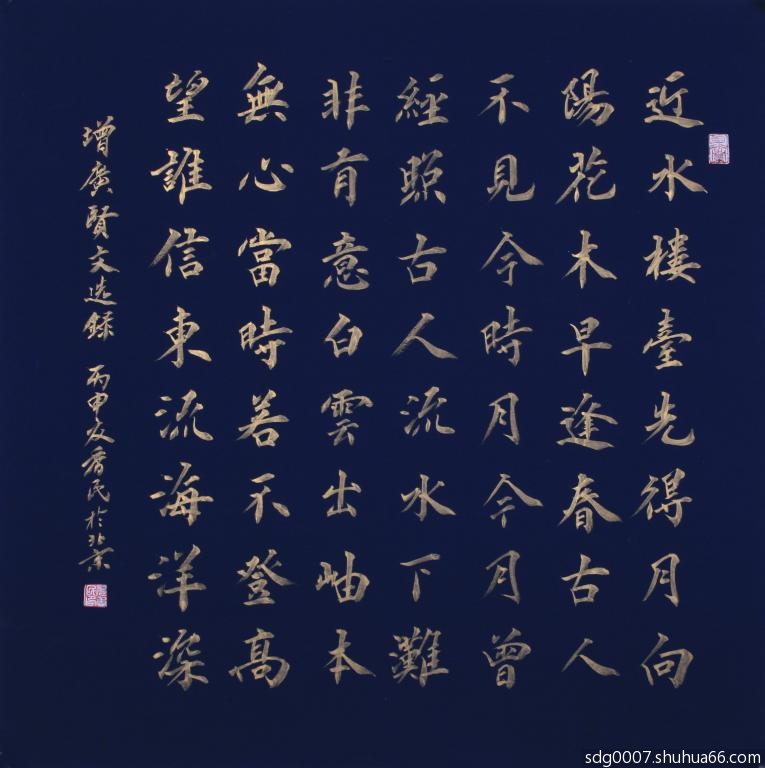 近水樓臺先得月向
陽花木早逢春古人
不見今時月今月曾
經照古人流水下灘
非有意白雲出岫本
無心當時若不登高
望誰信東流海洋深
增廣賢文选録 丙申民於北京
sdg0007.shuhua66.com